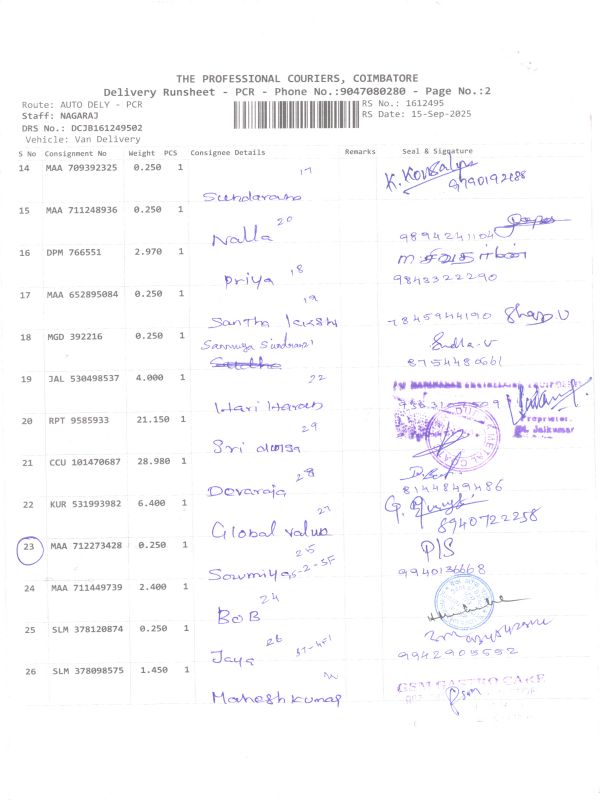 THE PROFESSIONAL COURIERS, COIMBATORE
Delivery Runsheet - PCR - Phone No.:9047080280 - Page No.:2
Route: AUTO DELY - PCR
RS No.: 1612495
Staff: NAGARAJ
RS Date: 15-Sep-2025
DRS No.: DCJB161249502
Vehicle: Van Delivery
S No Consignment No Weight PCS Consignee Details Remarks Seal & Signature
14 MAA 709392325 0.250 1 17
Sundaram
15 MAA 711248936 0.250 1 20
Nalla 9894241104
16 DPM 766551 2.970 1 18
Priya 9843322290
17 MAA 652895084 0.250 1 19
Santha 7845944190
18 MGD 392216 0.250 1
8754480661
19 JAL 530498537 4.000 1 22
Hari Haran
20 RPT 9585933 21.150 1 29
Sri
21 CCU 101470687 28.980 1 28
Devaraja 8144849486
22 KUR 531993982 6.400 1 27
Global value 8940722258
23 MAA 712273428 0.250 1 25 P/S
Soumiya 9940136668
24 MAA 711449739 2.400 1 24
BOB
25 SLM 378120874 0.250 1 26
Jaya 9942905552
26 SLM 378098575 1.450 1
Maheshkumar
GSM GASTRO CARE